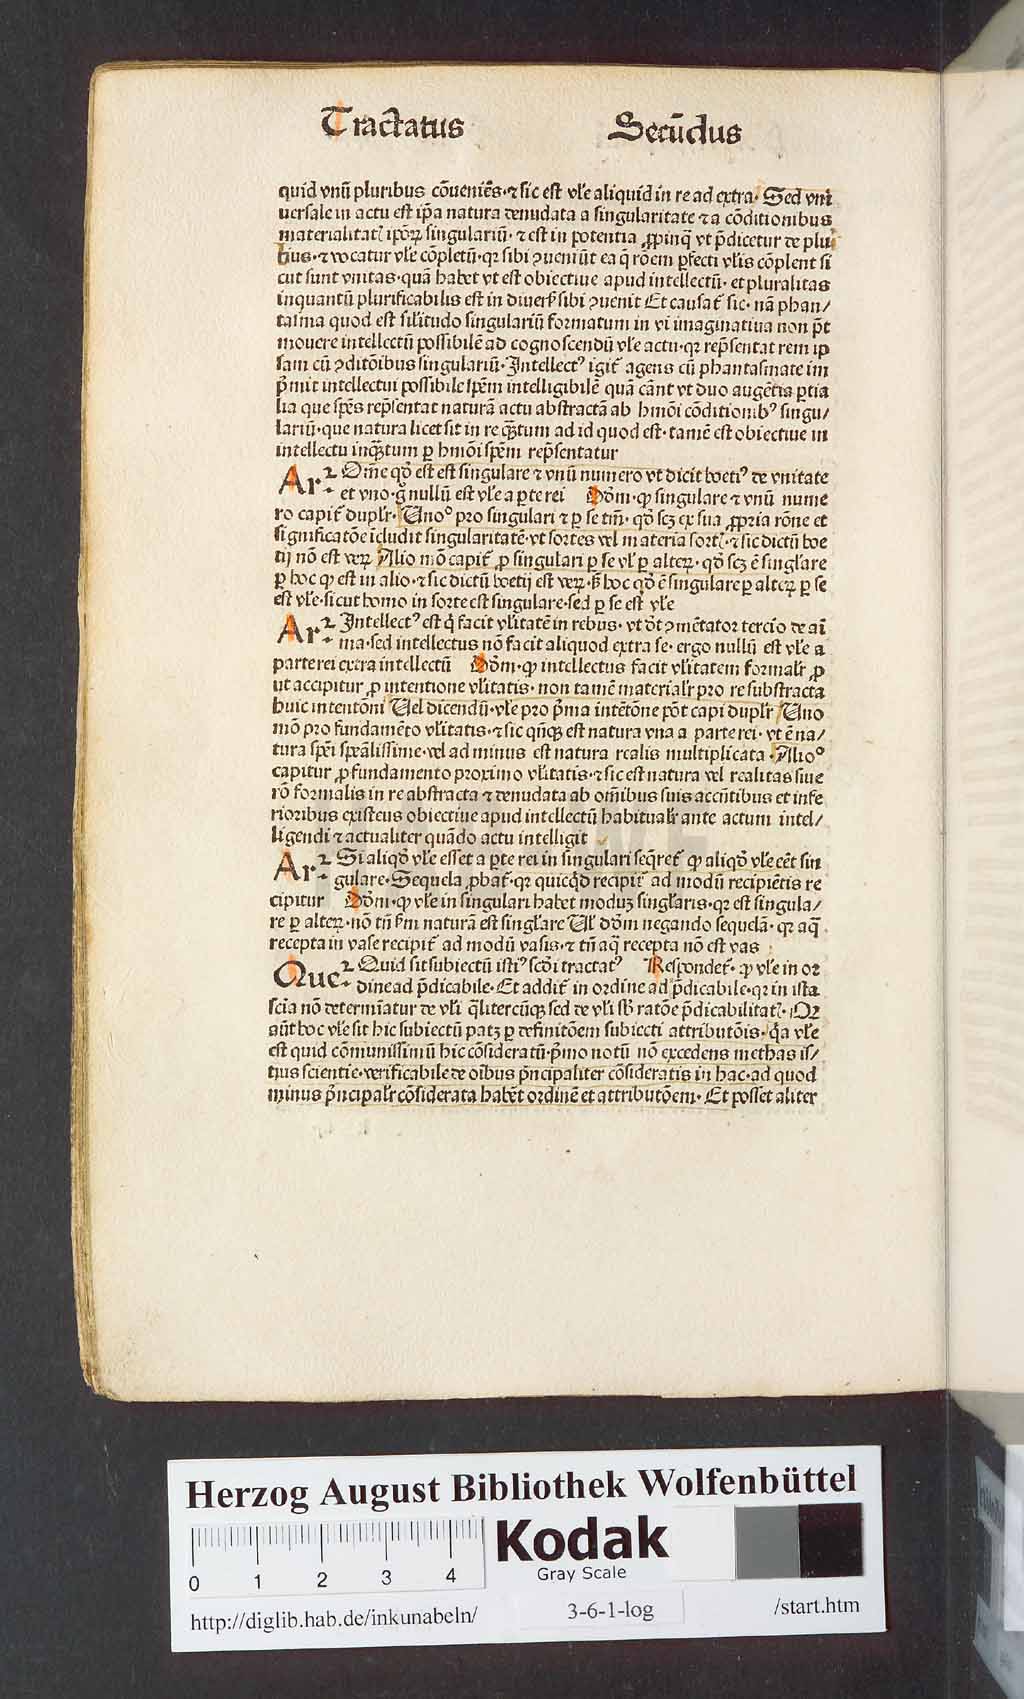 Tractatus Secũdus
quid vnũ pluribus cõueniẽs· ⁊ sic est vl'e aliquid in re ad extra· Sed vni
uersale in actu est ip̃a natura denudata a singularitate ⁊ a cõditionibus
materialitatꝭ ipõꝝ singulariũ· ⁊ est in potentia ꝓpinq̃ vt p̃dicetur de plu
bus· ⁊ vocatur vl'e cõpletũ· qꝛ sibi ꝯueniũt ea q̃ rõem ꝑfecti vl'is cõplent si
cut sunt vnitas· quã habet vt est obiectiue apud intellectũ· et pluralitas
inquantũ plurificabilis est in diuersꝭ sibi ꝯuenit Et causat᷑ sic· nã phan/
tasma quod est sil'itudo singulariũ formatum in vi imaginatiua non p̃t
mouere intellectũ possibilẽ ad cognoscendũ vl'e actu· qꝛ rep̃sentat rem ip
sam cũ ꝯditõibus singulariũ· Intellectꝰ igit᷑ agens cũ phantasmate im
p̃mit intellectui possibile spẽm intelligibilẽ quã cãnt vt duo augẽtia ꝑtia
lia que spẽs rep̃sentat naturã actu abstractã ab hmõi cõditionibꝰ singu/
lariũ· que natura licet sit in re q̃tum ad id quod est· tamẽ est obiectiue in
intellectu inq̃tum ꝑ hmõi spẽm rep̃sentatur
Arꝛ· Om̃e qd' est est singulare ⁊ vnũ numero vt dicit boetiꝰ de vnitate
et vno· g̊ nullũ est vl'e a ꝑte rei Dõm· ꝙ singulare ⁊ vnũ nume
ro capit᷑ duplr̃· Unoº pro singulari ⁊ ꝑ se tm̃· qd' scꝫ ex sua ꝓpria rõne et
significatõe icludit singularitatẽ· vt sortes vel materia sortꝭ· ⁊ sic dictũ boe
tij nõ est veꝝ Alio mõ capit᷑ ꝓ singulari ꝑ se vl' ꝑ alteꝝ· qd' scꝫ ẽ singl'are
ꝑ hoc ꝙ est in alio· ⁊ sic dictũ boetij est veꝝ· s̃ hoc qd' ẽ singulare ꝑ alteꝝ ꝑ se
est vl'e· sicut homo in sorte est singulare· sed ꝑ se est vl'e
Arꝛ· Intellectꝰ est q̃ facit vl'itatẽ in rebus· vt d't ꝯmẽtator tercio de ai
ma· sed intellectus nõ facit aliquod extra se· ergo nullũ est vl'e a
parte rei extra intellectũ Dõm· ꝙ intellectus facit vl'itatem formalr̃ ꝓ
ut accipitur ꝓ intentione vl'itatis· non tamẽ materialr̃ pro re substracta
huic intentõni Uel dicendũ· vl'e pro p̃ma intẽtõne põt capi duplr̃ Uno
mõ pro fundamẽto vl'itatis· ⁊ sic qñqꝫ est natura vna a parte rei· vt ẽ na/
tura spẽi spẽalissime· vel ad minus est natura realis multiplicata· Alioº
capitur ꝓ fundamento proximo vl'itatis· ⁊ sic est natura vel realitas siue
rõ formalis in re abstracta ⁊ denudata ab om̃ibus suis accñtibus et infe
rioribus existens obiectiue apud intellectũ habitualr̃ ante actum intel/
ligendi ⁊ actualiter quãdo actu intelligit
Arꝛ· Si aliqd' vl'e esset a ꝑte rei in singulari seq̃ret᷑ ꝙ aliqd' vl'e eẽt sin
gulare· Sequela ꝓbat᷑· qꝛ quicq̃d recipit᷑ ad modũ recipiẽtis re
cipitur Dõm· ꝙ vl'e in singulari habet moduꝫ singl'aris· qꝛ est singula/
re ꝑ alteꝝ· nõ tñ s̃m naturã est singl'are Ul' dõm negando sequelã· qꝛ aq̃
recepta in vase recipit᷑ ad modũ vasis· ⁊ tñ aq̃ recepta nõ est vas
Queꝛ· Quid sit subiectũ istiꝰ scd'i tractatꝰ Respondet᷑· ꝙ vl'e in or
dine ad p̃dicabile· Et addit᷑ in ordine ad p̃dicabile· qꝛ in ista
scia nõ determiat̃ur de vl'i q̃litercũqꝫ sed de vl'i sb' ratõe p̃dicabilitatꝭ· Qꝛ
aũt hoc vl'e sit hic subiectũ patꝫ ꝑ definitõem subiecti attributõis· q̃a vl'e
est quid cõmunissimũ hic cõsideratũ· p̃mo notũ nõ excedens methas is/
tius scientie· verificabile de oĩbus p̃ncipaliter cõsideratis in hac· ad quod
minus p̃ncipalr̃ cõsiderata habẽt ordinẽ et attributõem· Et posset aliter
Herzog August Bibliothek Wolfenbüttel
0 1 2 3 4
Kodak
Gray Scale
http://diglib.hab.de/inkunabeln/ 3-6-1-log /start.htm